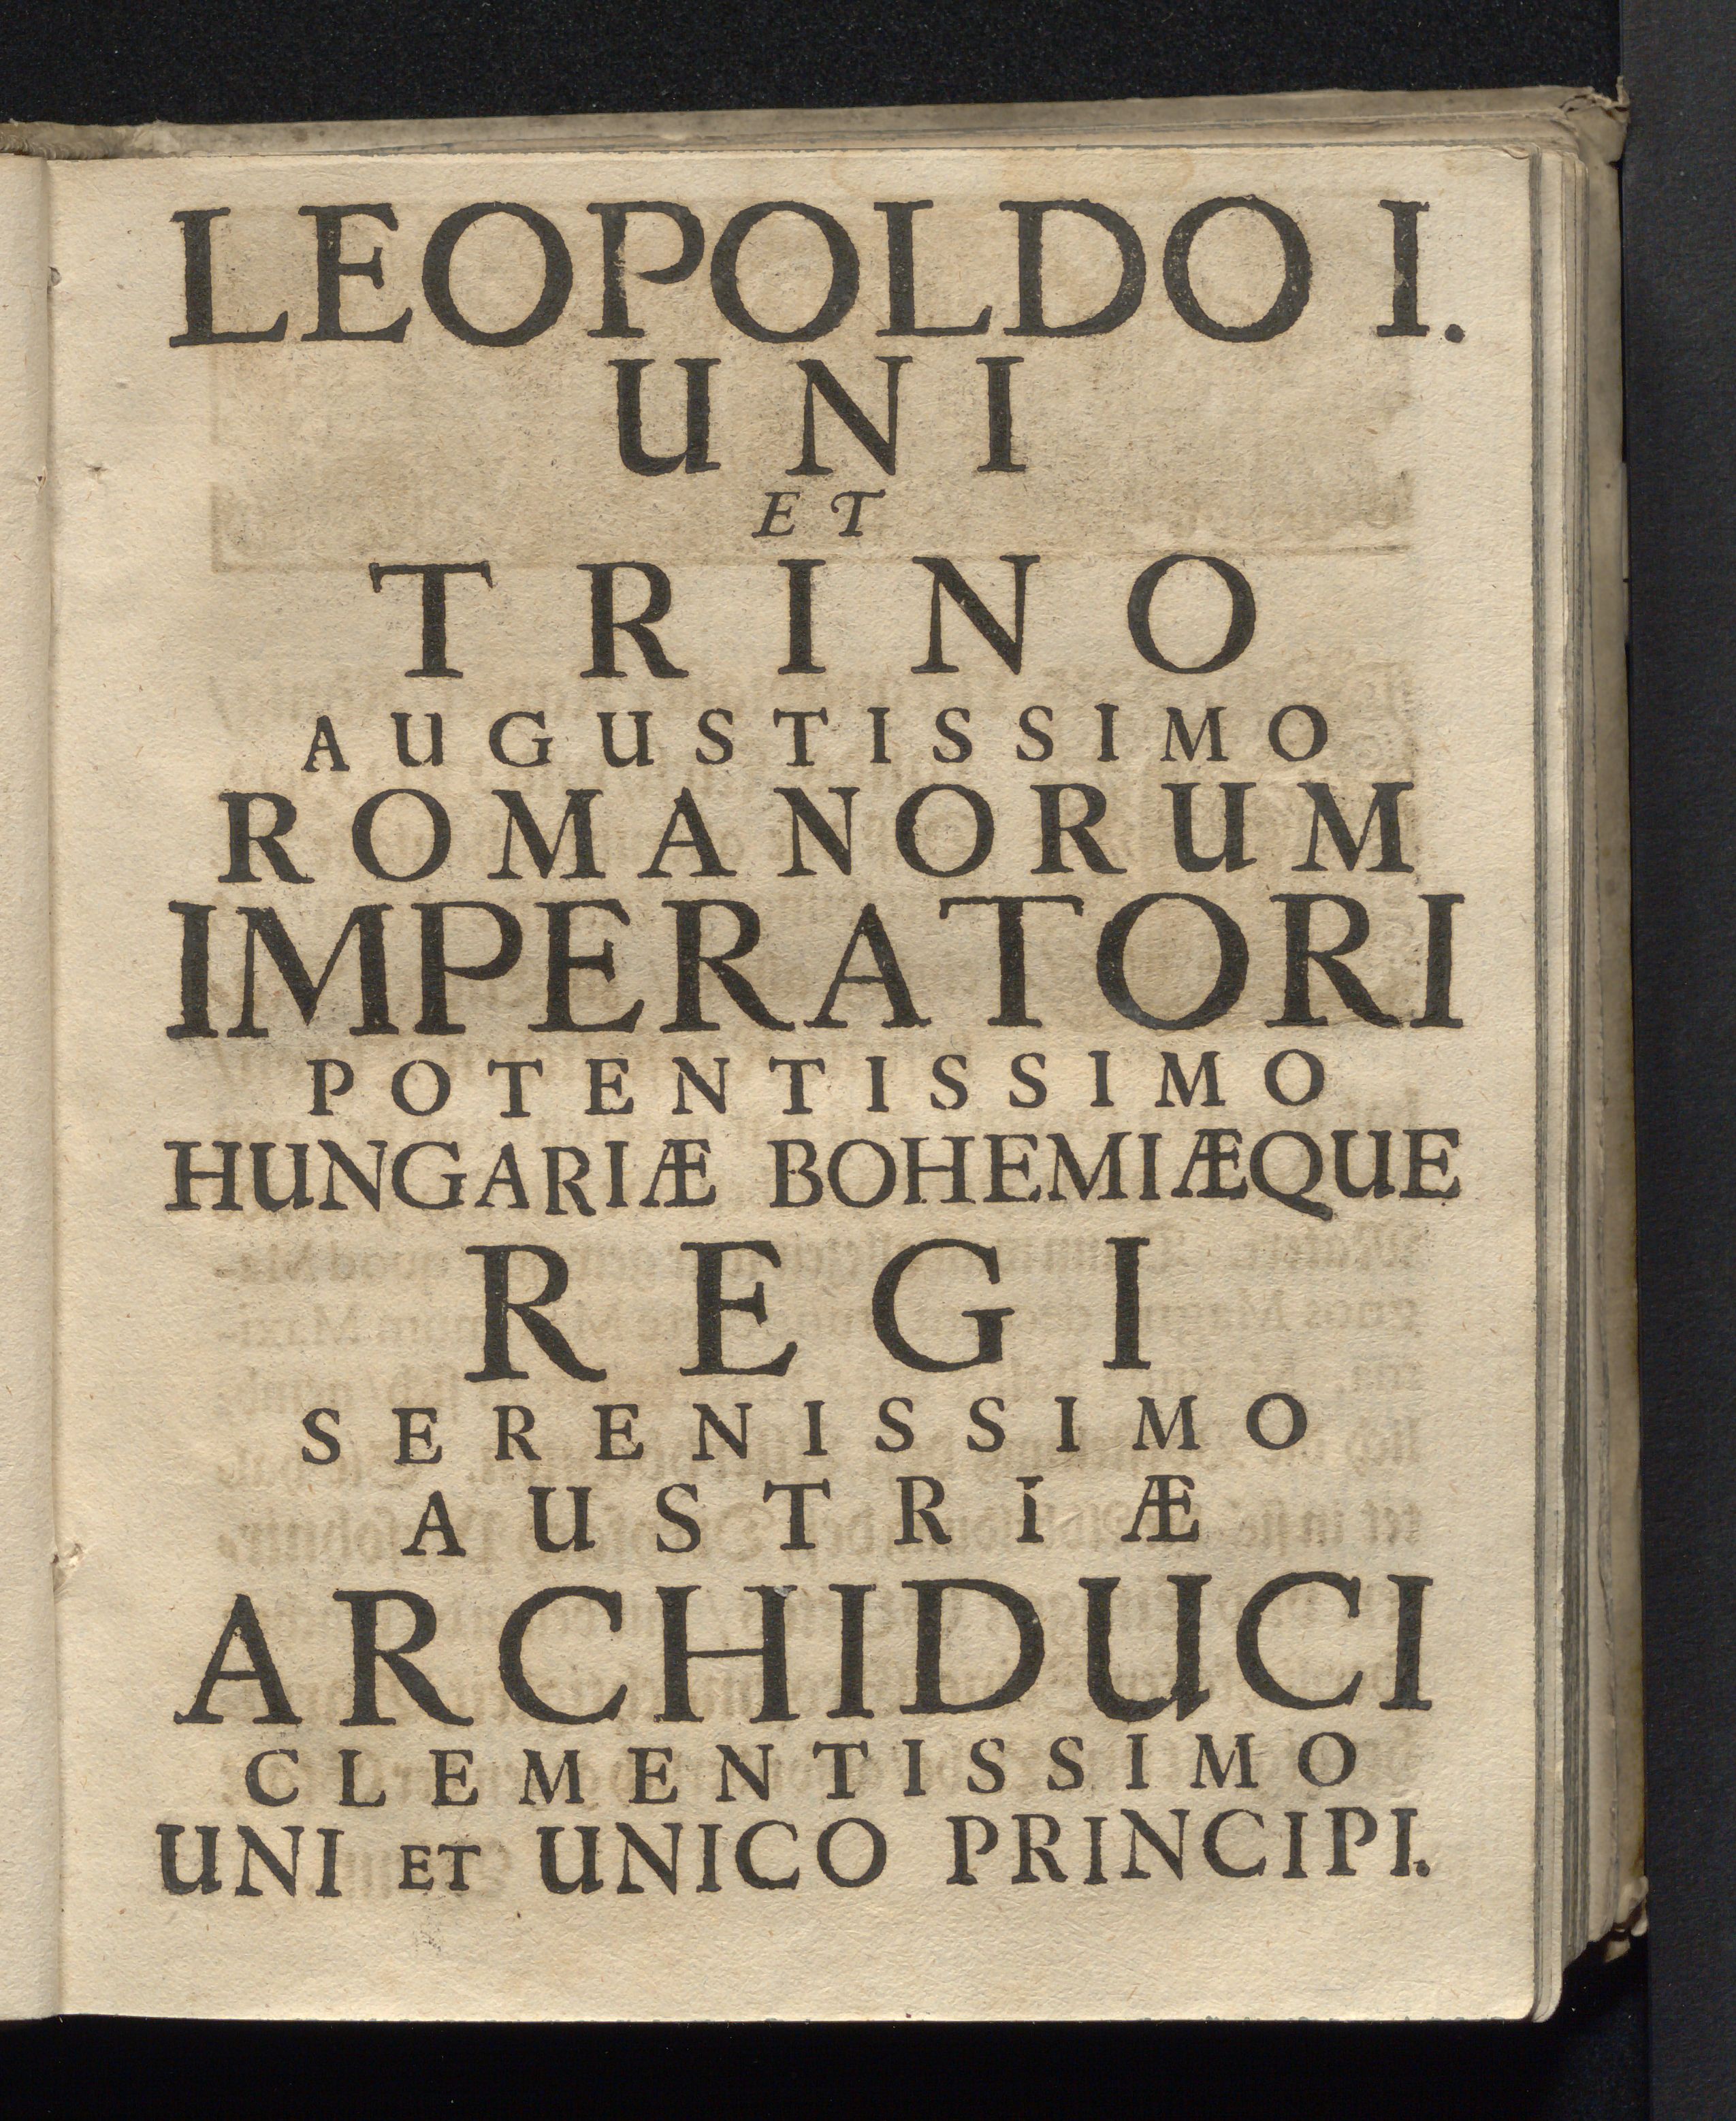 LEOPOLDO I.
UNI
ET
TRINO
AUGUSTISSIMO
ROMANORUM
IMPERATORI
POTENTISSIMO
HUNGARIÆ BOHEMIÆQUE
REGI
SERENISSIMO
AUSTRIÆ
ARCHIDUCI
CLEMENTISSIMO
UNI ET UNICO PRINCIPI.